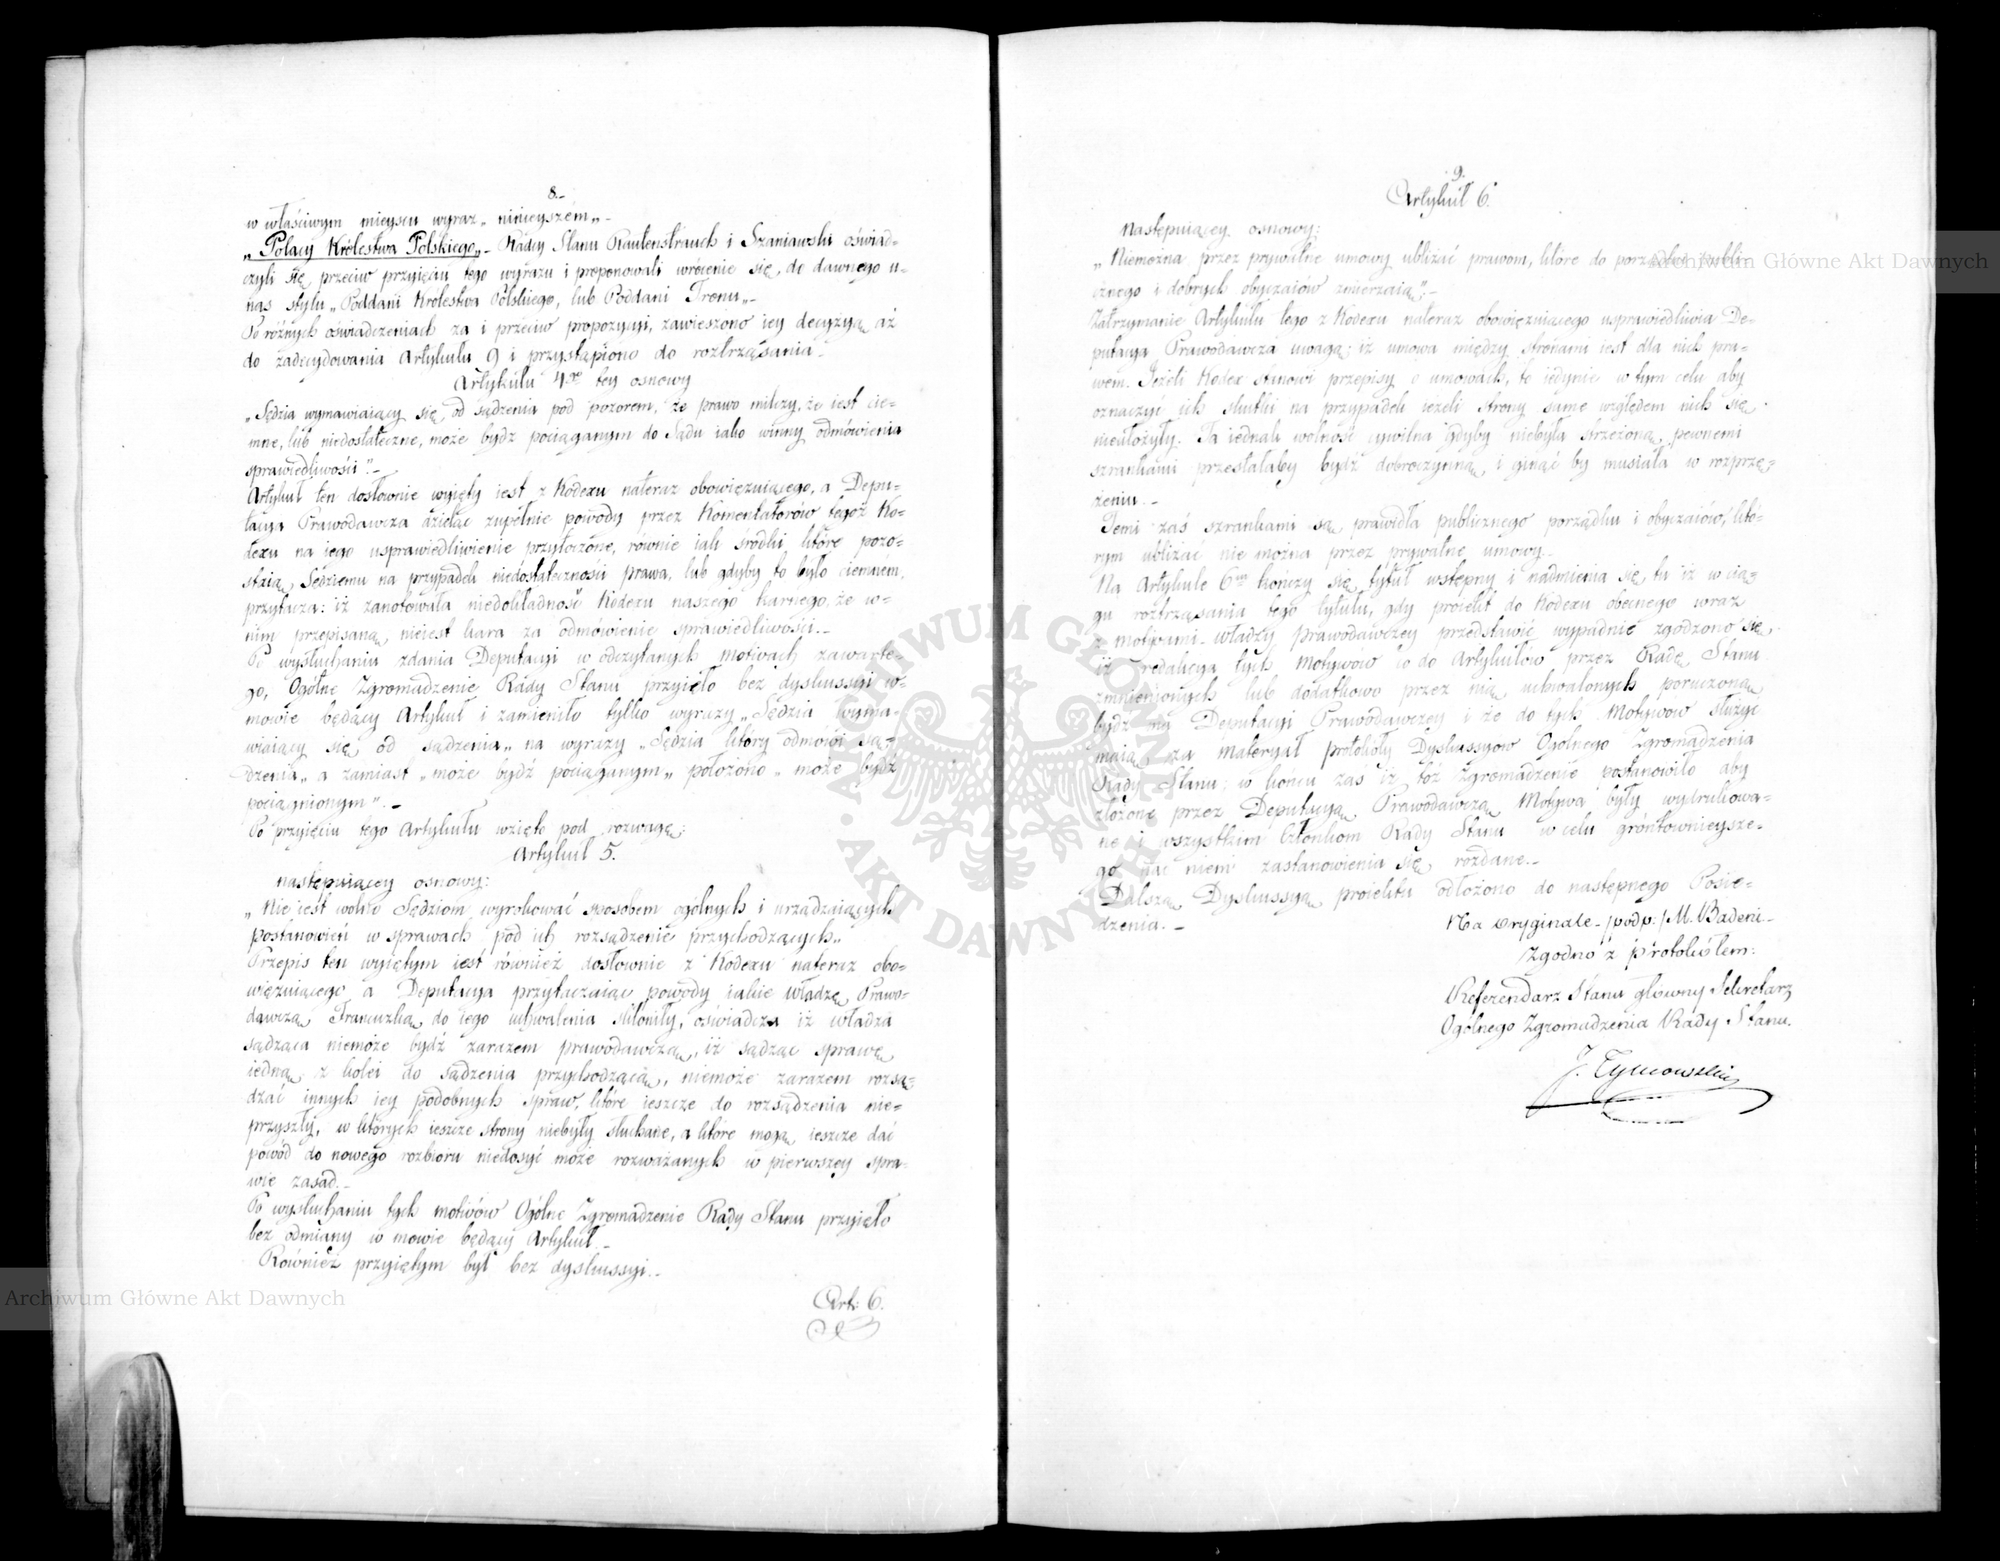 8.-
w właściwym mieyscu wyraz „ninieyszem„-
„Polacy Królestwa Polskiego„- Radcy Stanu Rautenstrauch i Szaniawski oświad=
czyli się przeciw przyięciu tego wyrazu i proponowali wrócenie się do dawnego u=
nas stylu „Poddani Królestwa Polskiego, lub Poddani Tronu„-
Po różnych oświadczeniach za i przeciw propozycyi, zawieszono iey decyzyą aż
do zadecydowania Artykułu 9 i przystąpiono do roztrząsania-
Artykułu 4go tey osnowy
„Sędzia wymawiaiący się od sądzenia pod pozorem, że prawo milczy, że iest cie=
mne, lub niedostateczne, może bydź pociąganym do Sądu iako winny odmówienia
sprawiedliwości".-
Artykuł ten dosłownie wyięty iest z Kodexu nateraz obowięzuiącego, a Depu=
tacya Prawodawcza dzieląc zupełnie powody przez Komentatorów tegoż Ko=
dexu na iego usprawiedliwienie przytoczone, równie iak środki które pozo=
staią Sędziemu na przypadek niedostateczności prawa, lub gdyby to było ciemnem,
przytacza: iż zanotowała niedokładność Kodexu naszego karnego, że w=
nim przepisaną nieiest kara za odmówienie sprawiedliwości.-
Po wysłuchaniu zdania Deputacyi w odczytanych motivach zawarte=
go, Ogólne Zgromadzenie Rady Stanu przyięło bez dyskussyi w=
mowie będący Artykuł i zamieniło tylko wyrazy „Sędzia wyma=
wiaiący się od sądzenia„ na wyrazy „Sędzia który odmówi są=
dzenia„ a zamiast „może bydź pociąganym„ położono „może bydź
pociągnionym".-
Po przyięciu tego Artykułu wzięto pod rozwagę:
Artykuł 5.
następuiącey osnowy:
„Nie iest wolno Sędziom wyrokować sposobem ogólnych i urządzaiących
postanowień w sprawach pod ich rozsądzenie przychodzących„
Przepis ten wyiętym iest również dosłownie z Kodexu nateraz obo=
więzuiącego a Deputacya przytaczaiąc powody iakie władzę Prawo=
dawczą Francuzką do iego uchwalenia skłoniły, oświadcza iż władza
sądząca niemoże bydź zarazem prawodawczą, iż sądząc sprawę
iedną z kolei do sądzenia przychodzącą, niemoże zarazem rozsą=
dzać innych iey podobnych spraw, które ieszcze do rozsądzenia nie=
przyszły, w których ieszcze strony niebyły słuchane, a które mogą ieszcze dać
powód do nowego rozbioru niedosyć może rozważanych w pierwszey spra=
wie zasad.-
Po wysłuchaniu tych motivów Ogólne Zgromadzenie Rady Stanu przyięło
bez odmiany w mowie będący Artykuł.-
Również przyiętym był bez dyskussyi.-
Art: 6.
9.
Artykuł 6.
następuiącey osnowy:
„Niemożna przez prywatne umowy ubliżać prawom, które do porządku publi=
cznego i dobrych obyczaiów zmierzaią".-
Zatrzymanie Artykułu tego z Kodexu nateraz obowięzuiącego usprawiedliwia De=
putacya Prawodawcza uwagą: iż umowa między stronami iest dla nich pra=
wem. Jeżeli Kodex stanowi przepisy o umowach, to iedynie w tym celu aby
oznaczyć ich skutki na przypadek ieżeli strony same względem nich się
nieułożyły. Ta iednak wolność cywilna gdyby niebyła strzeżoną pewnemi
szrankami przestałaby bydź dobroczynną, i ginąć by musiała w rozprzę=
żeniu.-
Temi zaś szrankami są prawidła publicznego porządku i obyczaiów, któ=
rym ubliżać nie można przez prywatne umowy.-
Na Artykule 6ym kończy się tytuł wstępny i nadmienia się tu iż w cią=
gu roztrząsania tego tytułu, gdy proiekt do Kodexu obecnego wraz
z motivami władzy prawodawczey przedstawić wypadnie zgodzono się
iż redakcya tych motywów co do Artykułów przez Radę Stanu
zmienionych lub dodatkowo przez nią uchwalonych poruczoną
bydź ma Deputacyi Prawodawczey i że do tych Motywów służyć
maią za materyał protokóły Dyskussyów Ogólnego Zgromadzenia
Rady Stanu; w końcu zaś iż toż Zgromadzenie postanowiło aby
złożone przez Deputacyą Prawodawczą Motywa były wydrukowa=
ne i wszystkim Członkom Rady Stanu w celu gróntownieysze=
go nad niemi zastanowienia się rozdane.-
Dalszą Dyskussyą proiektu odłożono do następnego Posie=
dzenia.-
Na oryginale - /podp:/ M. Badeni-
Zgodno z protokółem:
Referendarz Stanu główny Sekretarz
Ogólnego Zgromadzenia Rady Stanu.
J. Tymowski
Archiwum Główne Akt Dawnych
Archiwum Główne Akt Dawnych
ARCHIWUM GŁÓWNE AKT DAWNYCH